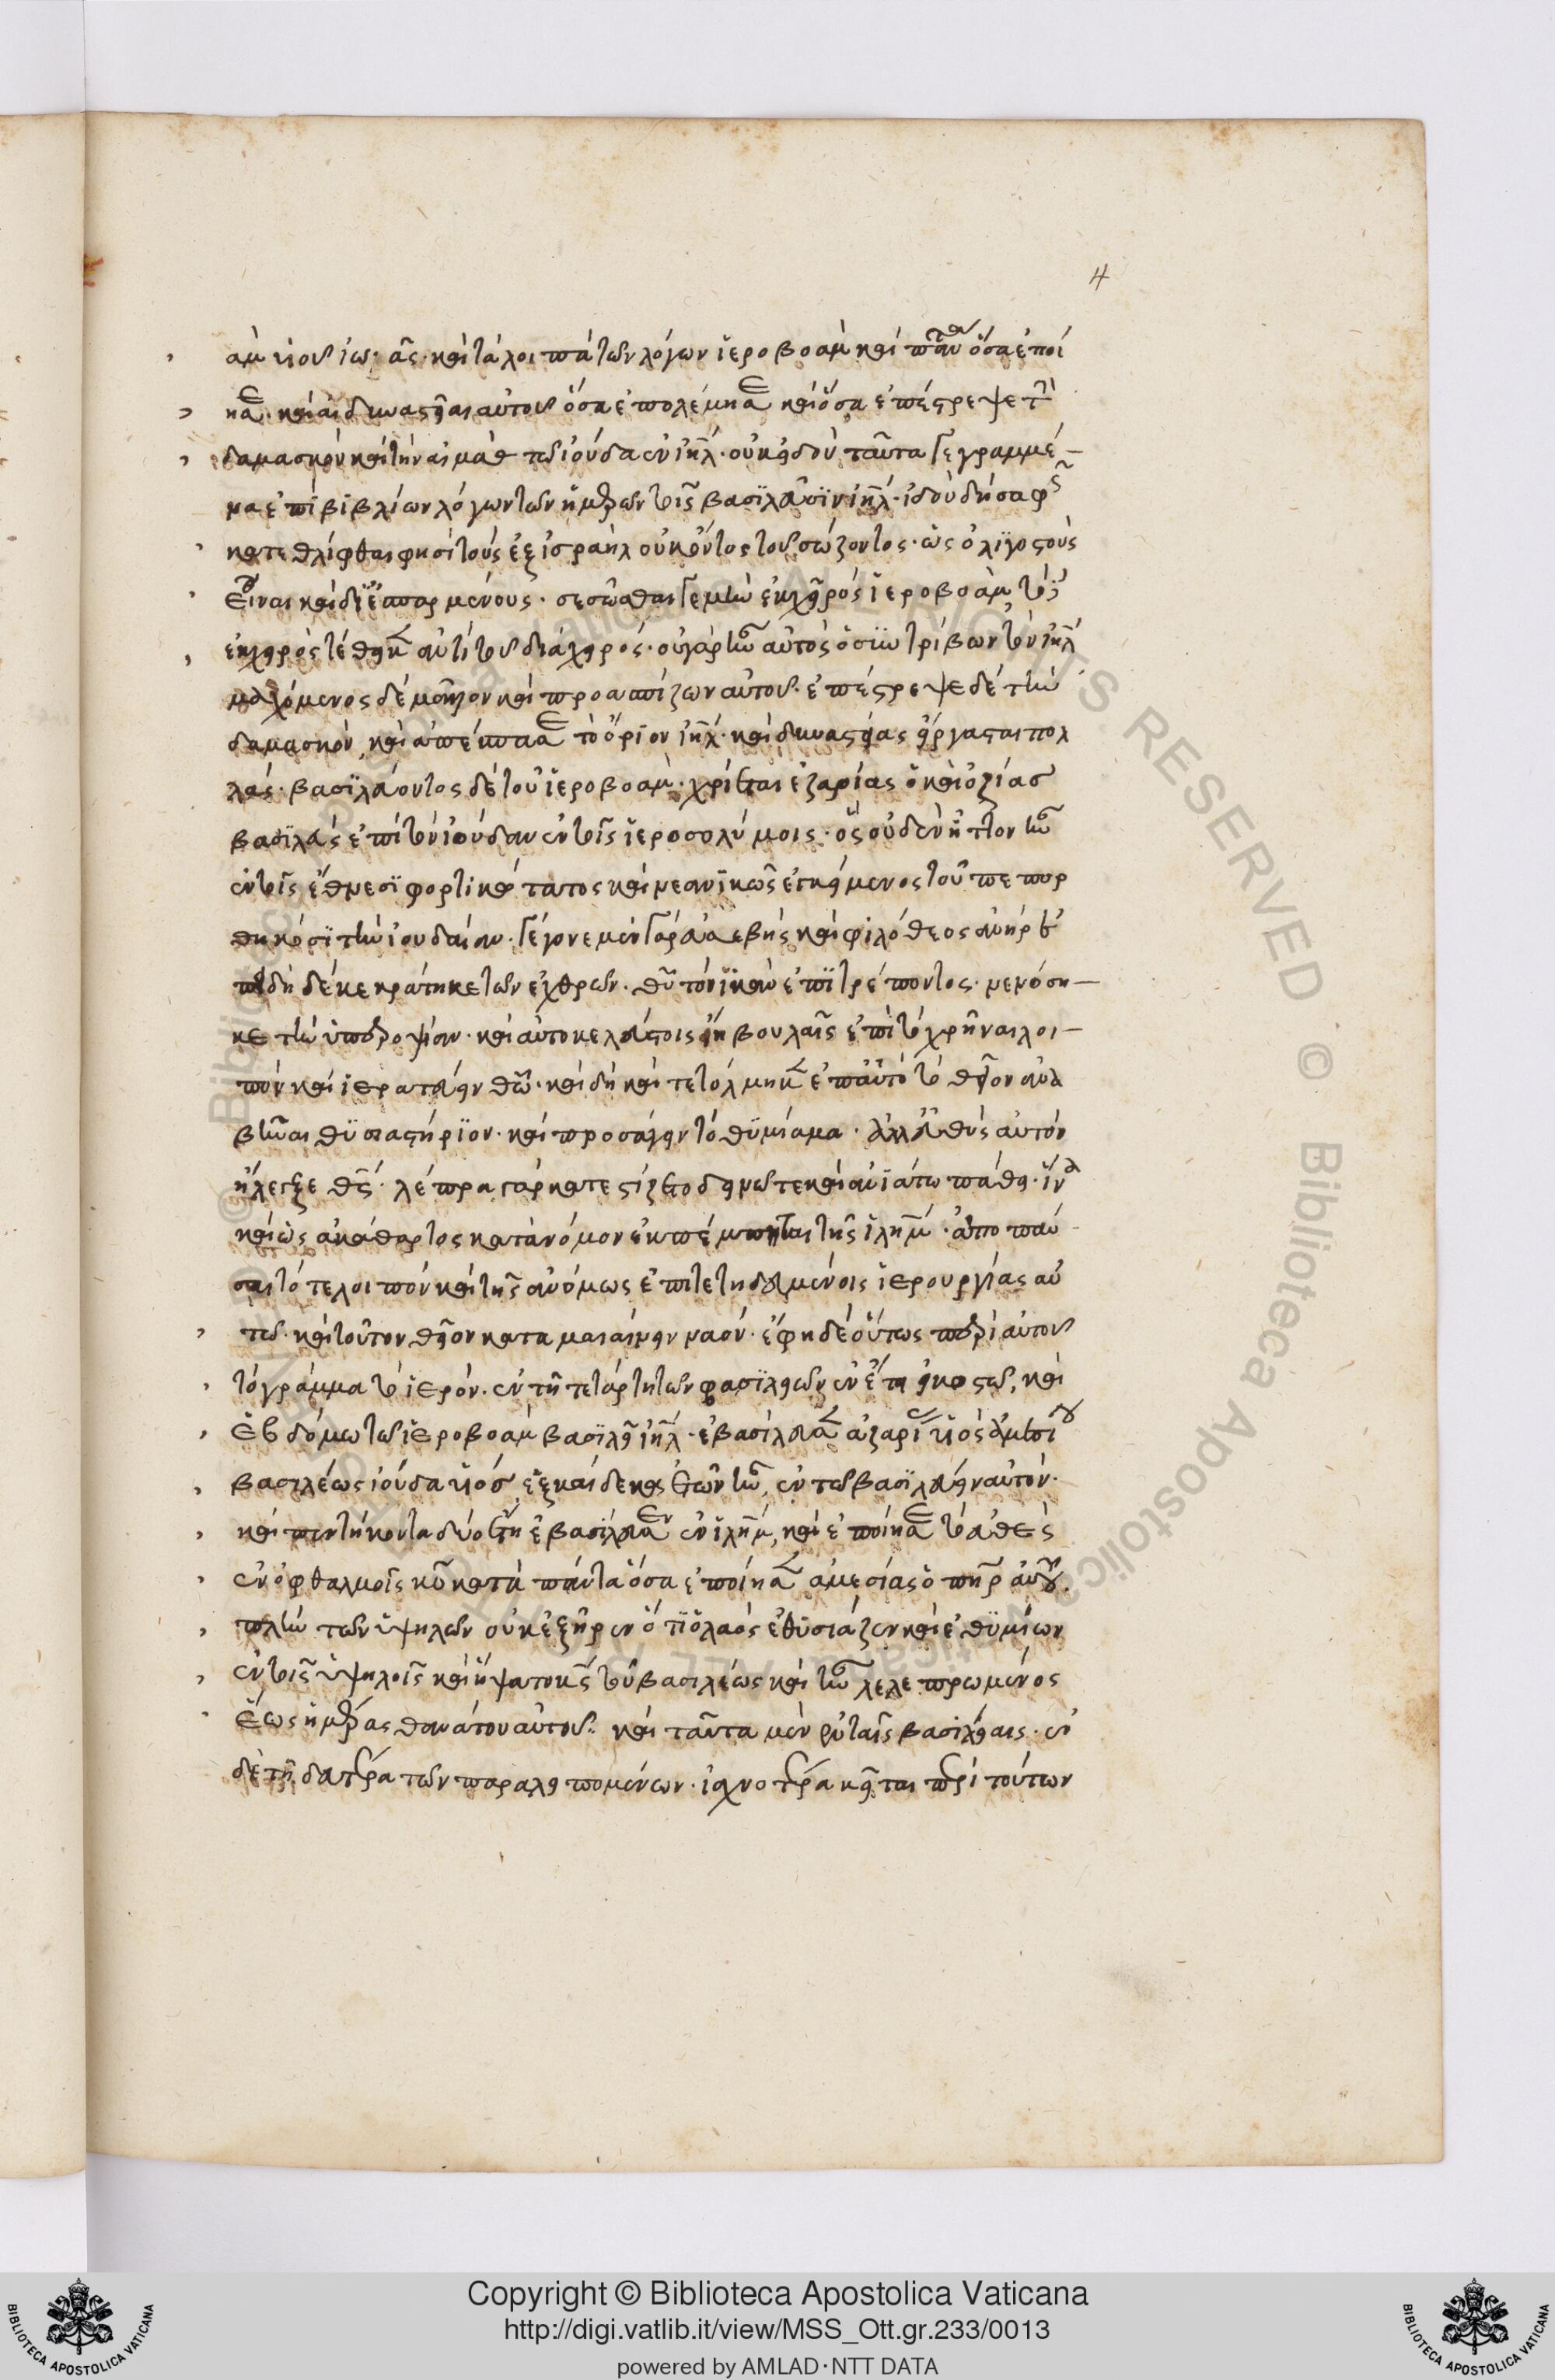 4
αμ υἱοῦ ἰωάς· καὶ τὰ λοιπὰ τῶν λόγων ἱεροβοὰμ καὶ πάντα ὅσα ἐποί
ησε· καὶ αἱ δυναστεῖαι αὐτοῦ ὅσα ἐπολέμησε καὶ ὅσα ἐπέστρεψε τὴν
δαμασκὸν καὶ τὴν αἰμὰθ τῶ ἰούδα ἐν ἰηλ· οὐκ ἰδοὺ ταῦτα γεγραμμέ-
να ἐπὶ βιβλίων λόγων τῶν ἡμερῶν τοῖς βασιλεῦσιν ἰηλ· ἰδοὺ δὴ σαφῶς
κατεθλίφθαι φησὶ τοὺς ἐξ ἰσραὴλ οὐκ ὄντος τοῦ σώζοντος· ὡς ὀλιγοστοὺς
εἶναι καὶ διεσπαρμένους· σεσῶσθαι γε μὴν ἐκ χειρὸς ἱεροβοὰμ τὸ
ἐκ χειρὸς τέθεικεν ἀντὶ τοῦ διὰ χειρός· οὐ γὰρ ἦν αὐτὸς ὁ συντρίβων τὸν ἰηλ
μαχόμενος δὲ μᾶλλον καὶ προασπίζων αὐτοῦ· ἐπέστρεψε δὲ τὴν
δαμασκὸν καὶ ἀπέστησε τὸ ὅριον ἰηλ· καὶ δυναστείας εἴργασται πολ
λάς· βασιλεύοντος δὲ τοῦ ἱεροβοὰμ· χρίεται ἀζαρίας ὁ καὶ ὀζίας
βασιλεὺς ἐπὶ τὸν ἰούδαν ἐν τοῖς ἱεροσολύμοις· ὃς οὐδὲν ἧττον ἦν
ἐν τοῖς ἔθνεσι φορτικώτατος καὶ νεανικῶς ἐπικείμενος τοῦ πεπορ
θηκόσι τὴν ἰουδαίαν· γέγονε μὲν γὰρ εὐσεβὴς καὶ φιλόθεος ἀνήρ· ἐ
πειδὴ δὲ κεκράτηκε τῶν ἐχθρῶν· θῦ τὸ νικᾶν ἐπιτρέποντος· νενόση-
κε τὴν ὑπεροψίαν· καὶ αὐτοκελεύστοις βουλαῖς ἐπὶ τὸ χρῆναι λοι-
πὸν καὶ ἱερατεύειν θῶ· καὶ δὴ καὶ τετόλμηκεν ἐπ αὐτὸ τὸ θεῖον ἀνα
βῆναι θυσιαστήριον· καὶ προσάγειν τὸ θυμίαμα· ἀλλ εὐθὺς αὐτὸν
ἤλεγξε θς· λέπρα γὰρ κατεστίζετο δεινῶ τε καὶ ἀνιάτω πάθει· ἵνα
καὶ ὡς ἀκάθαρτος κατὰ νόμον ἐκπέμπηται τῆς ἰλημ· ἀποπαύ
σαιτό τε λοιπὸν καὶ τῆς ἀνόμως ἐπιτετηδευμένοις ἱερουργίας αὐ
τῶ· καὶ τοῦτον θεῖον καταμιαίνειν ναόν· ἔφη δὲ οὕτως περὶ αὐτοῦ
τὸ γράμμα τὸ ἱερόν· ἐν τῇ τετάρτη τῶν βασιλειῶν ἐν ἔτει εἰκοστῶ, καὶ
ἑβδόμω τῶ ἱεροβοὰμ βασιλεῖ ἰηλ· ἐβασίλευσεν ἀζαρίας υἱὸς ἀμεσίου
βασιλέως ἰούδα υἱὸς ἑξκαίδεκα ἐτῶν ἦν, ἐν τῶ βασιλεύειν αὐτόν·
καὶ πεντήκοντα δύο ἔτη ἐβασίλευσεν ἐν ἰλημ, καὶ ἐποίησε τὸ εὐθὲς
ἐν ὀφθαλμοῖς κυ κατὰ πάντα ὅσα ἐποίησεν ἀμεσίας ὁ πηρ αὐτοῦ.
πλὴν τῶν ὑψηλῶν οὐκ ἐξῆρεν ὅτι ὁ λαὸς ἐθυσίαζεν καὶ ἐθυμίων
ἐν τοῖς ὑψηλοῖς καὶ ἥψατο κς τοῦ βασιλέως καὶ ἦν λελεπρωμένος
ἕως ἡμέρας θανάτου αὐτοῦ· καὶ ταῦτα μὲν ἐν ταῖς βασιλείαις· ἐν
δὲ τῇ δευτέρα τῶν παραλειπομένων· ἰσχνοτέρα κεῖται περὶ τούτων
Copyright © Biblioteca Apostolica Vaticana
http://digi.vatlib.it/view/MSS_Ott.gr.233/0013
powered by AMLAD·NTT DATA